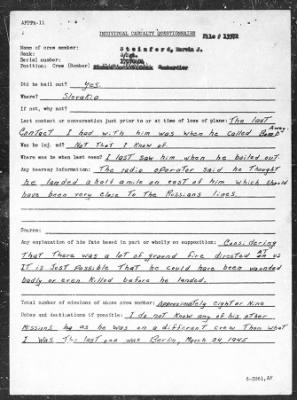 AFPPA-11
INDIVIDUAL CASUALTY QUESTIONNAIRE
File #
Name of crew member: Steinford, Marvin J.
Rank: S/Sgt.
Serial number:
Position: Crew (Bomber)
Did he bail out? Yes.
Where? Slovakia
If not, why not?
Last contact or conversation just prior to or at time of loss of plane: The last
Contact I had with him was when he called Bombs Away.
Was he injured? Not That I Know of.
Where was he when last seen? I last saw him when he bailed out
Any hearsay information: The radio operator said he thought
he landed a half mile or east of him which should
have been very close To the Russians lines.
Source:
Any explanation of his fate based in part or wholly on supposition: Considering
That There was a lot of ground fire directed AT us
IT is Just Possible That he could have been wounded
badly or even Killed before he landed.
Total number of missions of above crew member: Approximately eight or Nine
Dates and destinations if possible: I do not Know any of his other
Missions as he was on a different crew Than what
I Was The last one was Berlin, March 24 1945